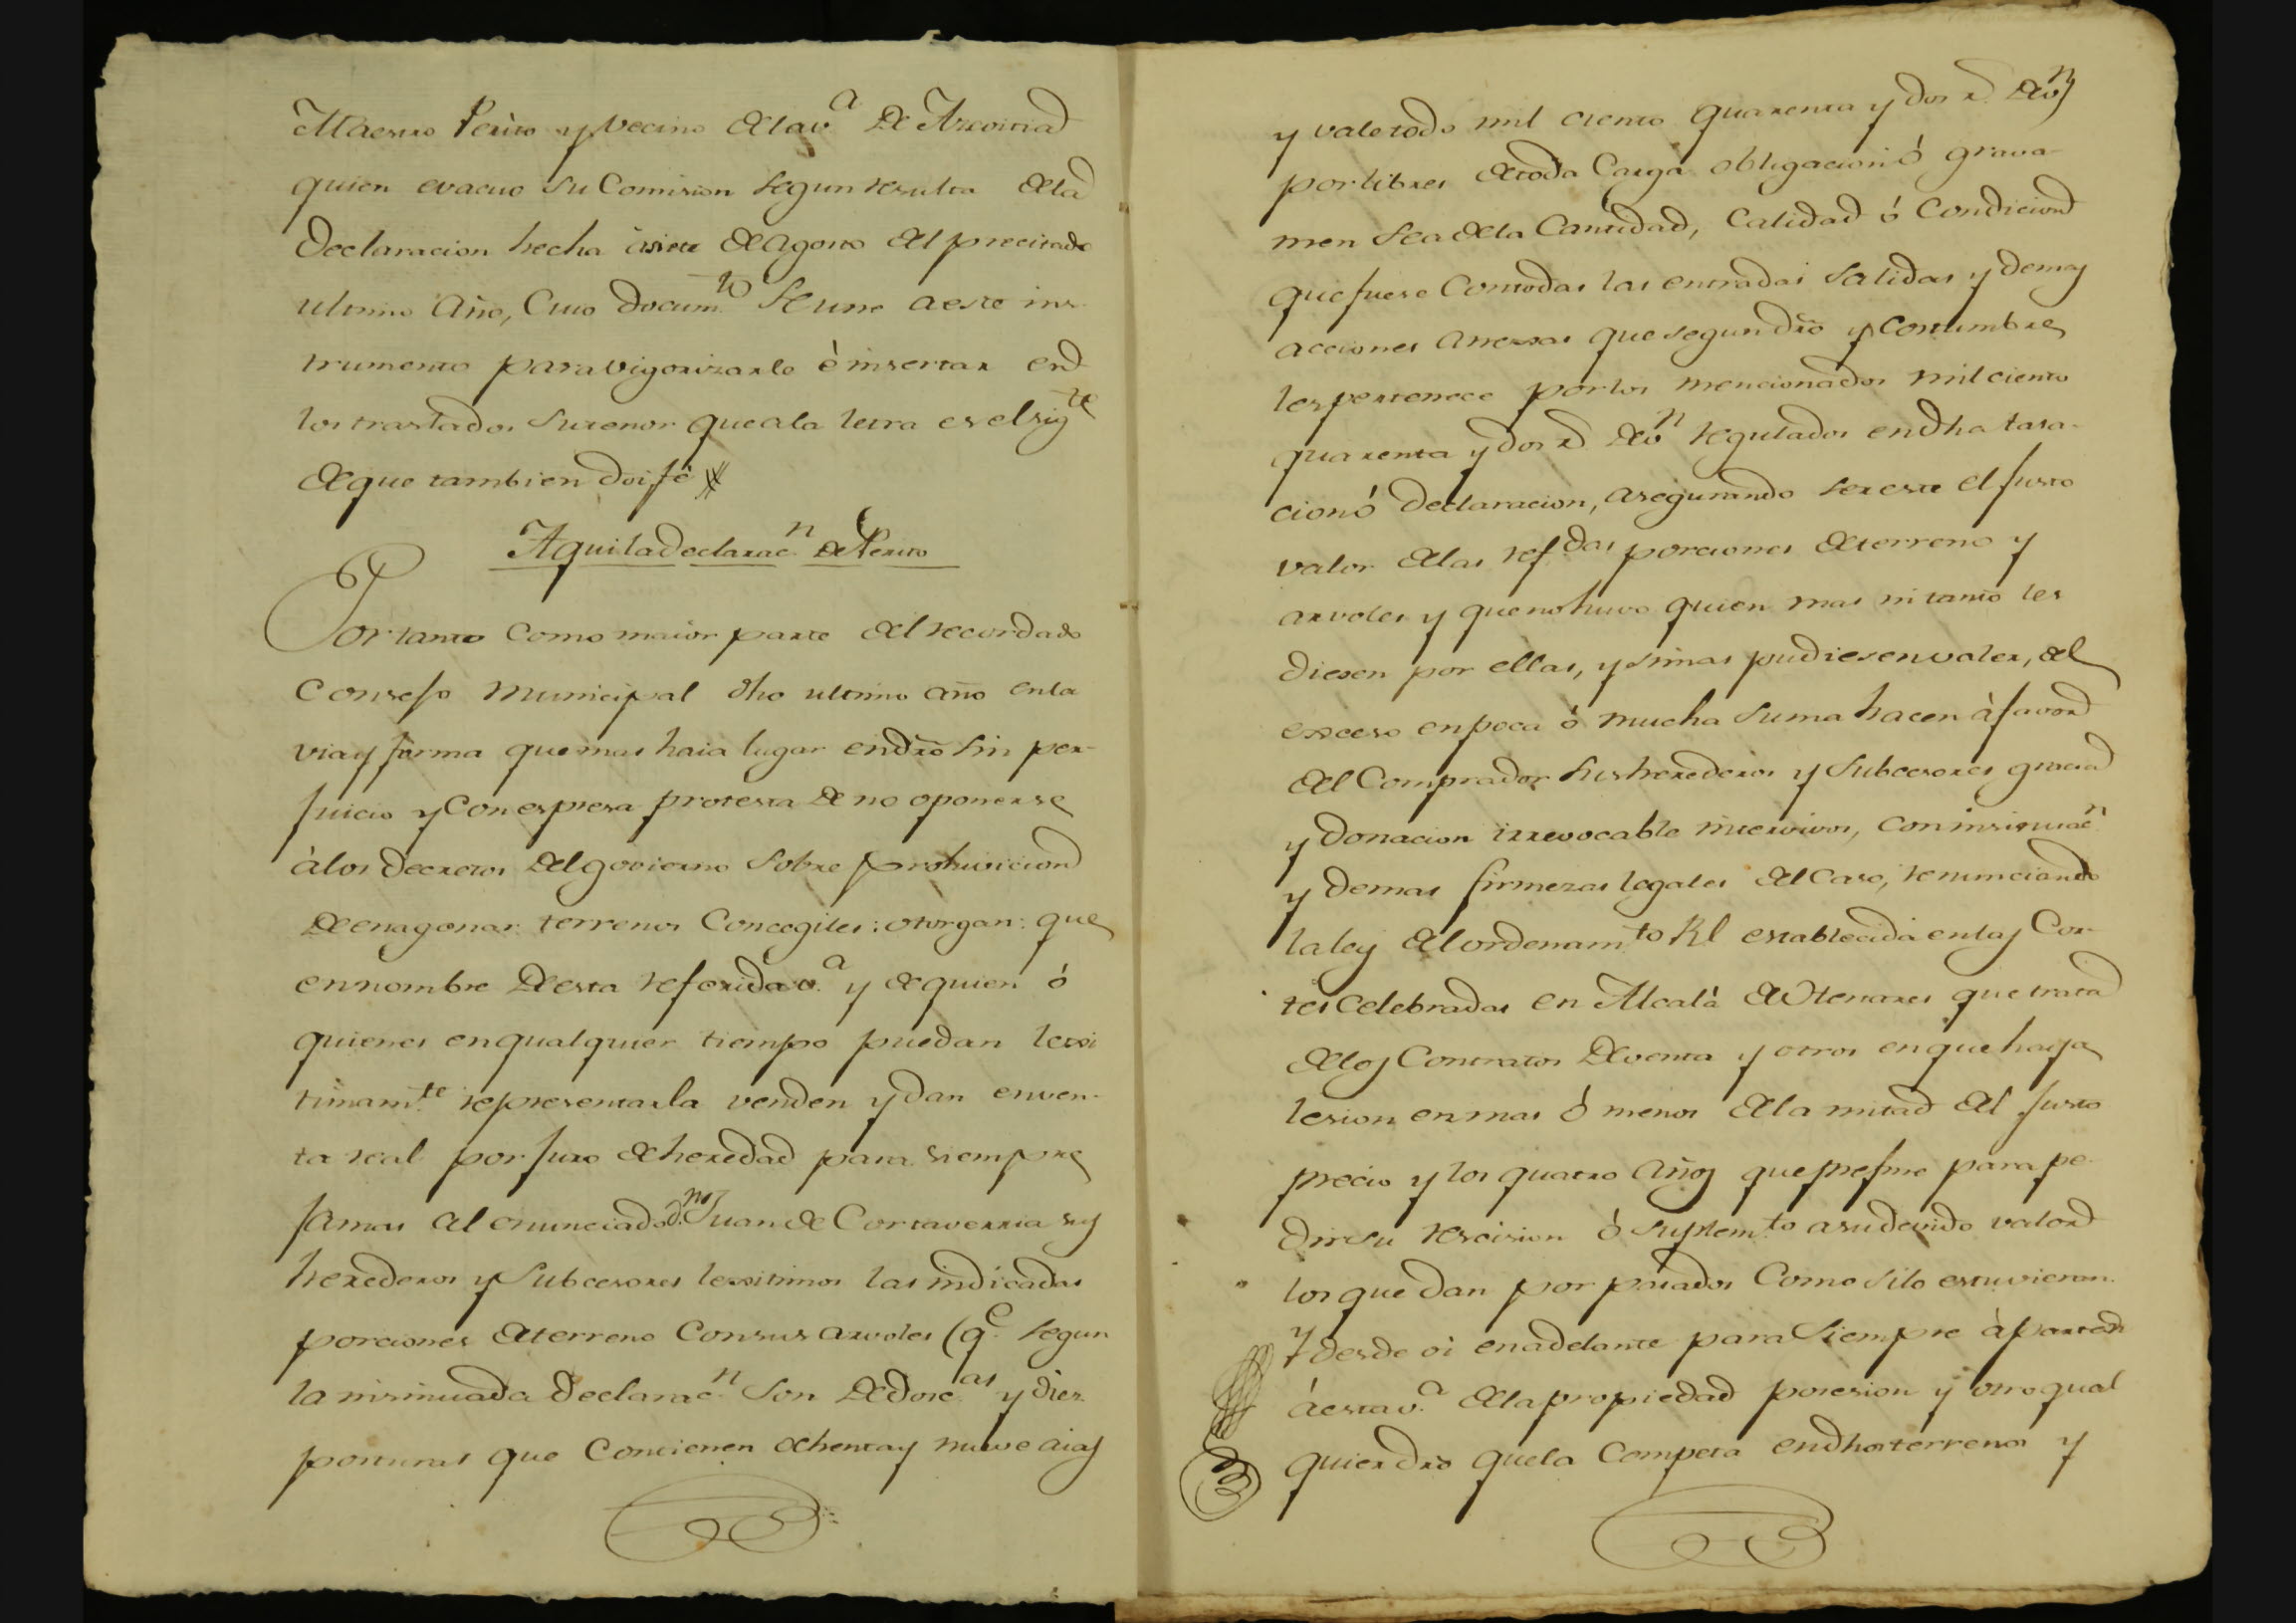 Maestro Perito y vecino de la v.ª de Azcoitia
quien evacuo su Comision segun resulta de la
Declaracion hecha à siete de Agosto del precitado
ultimo Año, Cuio Docum.to se une a este ins-
trumento para vigorizarlo è insertar en
los traslados su tenor que ala letra es el sig.te
de que tambien doi fè
Aqui la declarac.n de Perito
Por tanto como maior parte del recordado
Consejo Municipal dho ultimo año en la
via y forma que mas haia lugar en dro sin per-
juicio y con espresa protesta de no oponerse
à los decretos del govierno sobre prohivicion
de enagenar terrenos Concegiles: otorgan: que
en nombre de esta referida v.ª y de quien ó
quienes en qualquier tiempo puedan lexi
timam.te representarla venden y dan en ven-
ta real por juro de heredad para siempre
jamas al enunciado d.n Juan de Cortaverria sus
herederos y Subcesores lexitimos las indicadas
porciones de terreno con sus arvoles (q.e segun
la insinuada declarac.n son de doce.as y diez
posturas que contienen ochenta y nueve aias
y vale todo mil ciento quarenta y dos r.s de v.n)
por libres de toda Carga obligacion ó grava-
men sea de la Cantidad, Calidad ó Condicion
que fuere con todas las entradas salidas y demas
acciones anexas que segun dro y costumbre
les pertenece por los mencionados mil ciento
quarenta y dos r.s de v.n regulados en dha tasa-
cion ó declaracion, asegurando ser este el justo
valor de las ref.das porciones de terreno y
arvoles y que no huvo quien mas ni tanto les
diesen por ellas, y si mas pudiesen valer, del
exceso en poca ó mucha suma hacen à favor
del Comprador sus herederos y Subcesores gracia
y donacion irrevocable intervivos, con insinuac.n
y demas firmezas legales del caso, renunciando
la ley del ordenam.to Rl establecida en las Cor-
tes celebradas en Alcalà de Henares que trata
de los Contratos de venta y otros en que haya
lesion en mas ó menos de la mitad del justo
precio y los quatro años que prefine para pe-
dir su rescision ó suplem.to a su devido valor
los que dan por pasados como si lo estuvieran.
Y desde oi en adelante para siempre àpartan
á esta v.ª de la propiedad posesion y otro qual
quier dro que la competa en dhos terrenos y